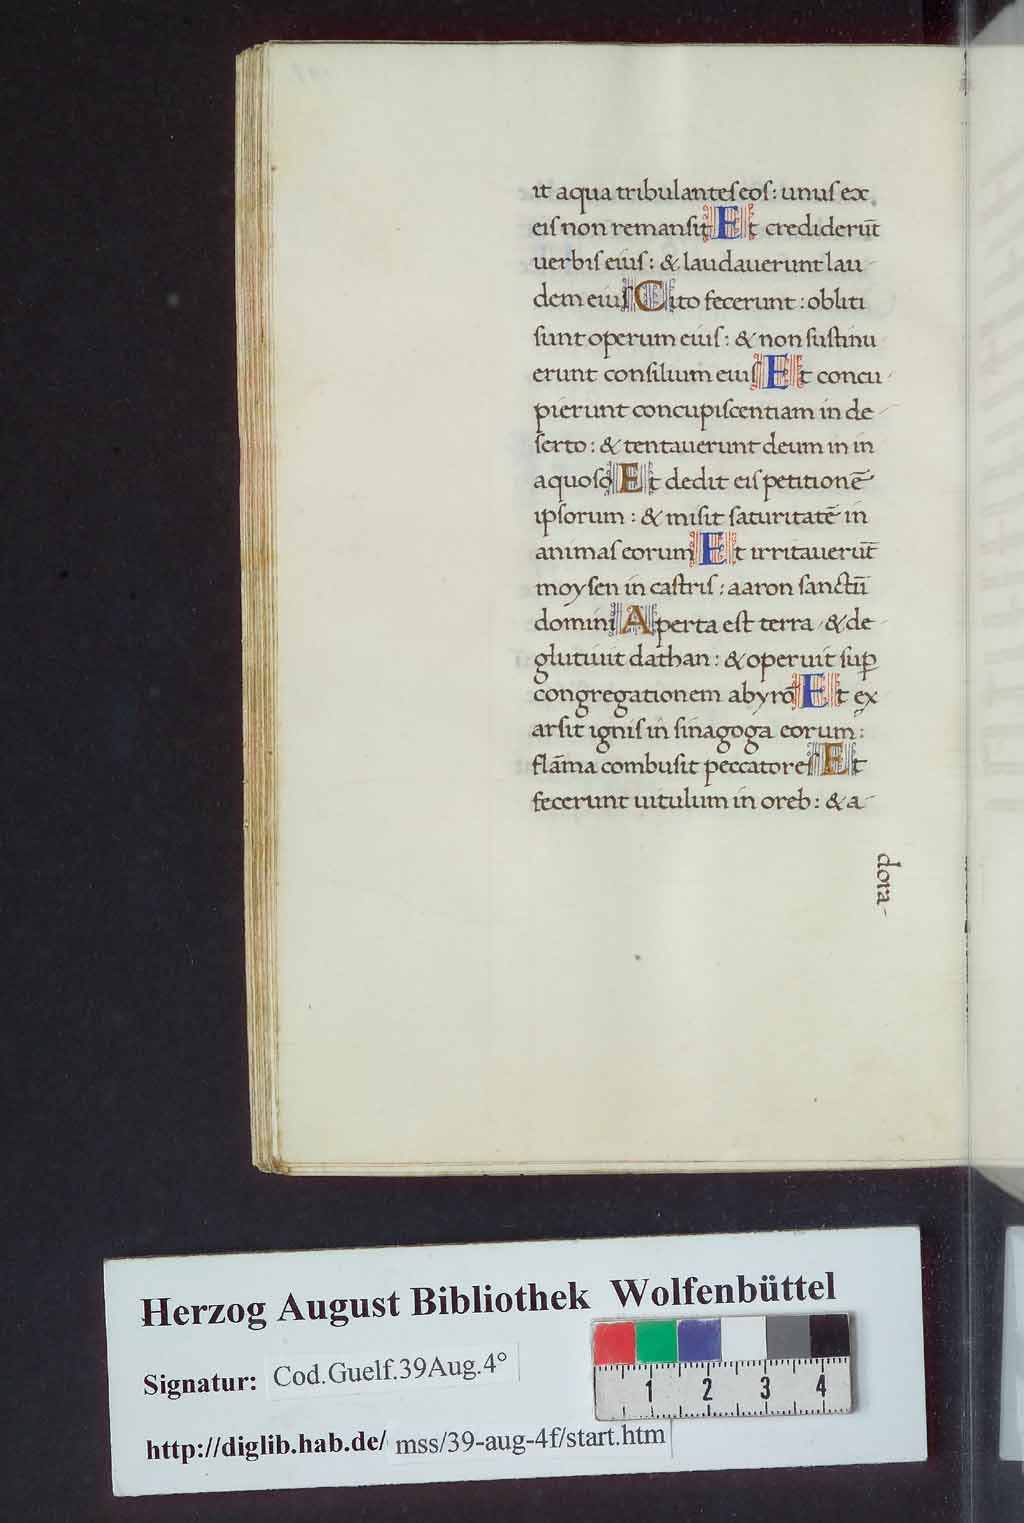 it aqua tribulantes eos: unus ex
eis non remansit Et crediderūt
uerbis eius: & laudauerunt lau
dem eius Cito fecerunt: obliti
sunt operum eius: & non sustinu
erunt consilium eius Et concu-
pierunt concupiscentiam in de-
serto: & tentauerunt deum in in
aquoso Et dedit eis petitionē
ipsorum: & misit saturitatē in
animas eorum Et irritauerūt
moysen in castris: aaron sanctū
domini Aperta est terra & de
glutiuit dathan: & operuit suꝑ
congregationem abyrō Et ex
arsit ignis in sinagoga eorum:
flāma combusit peccatores Et
fecerunt uitulum in oreb: & a-
dora-
Herzog August Bibliothek Wolfenbüttel
Signatur: Cod.Guelf.39Aug.4°
http://diglib.hab.de/ mss/39-aug-4f/start.htm
1 2 3 4